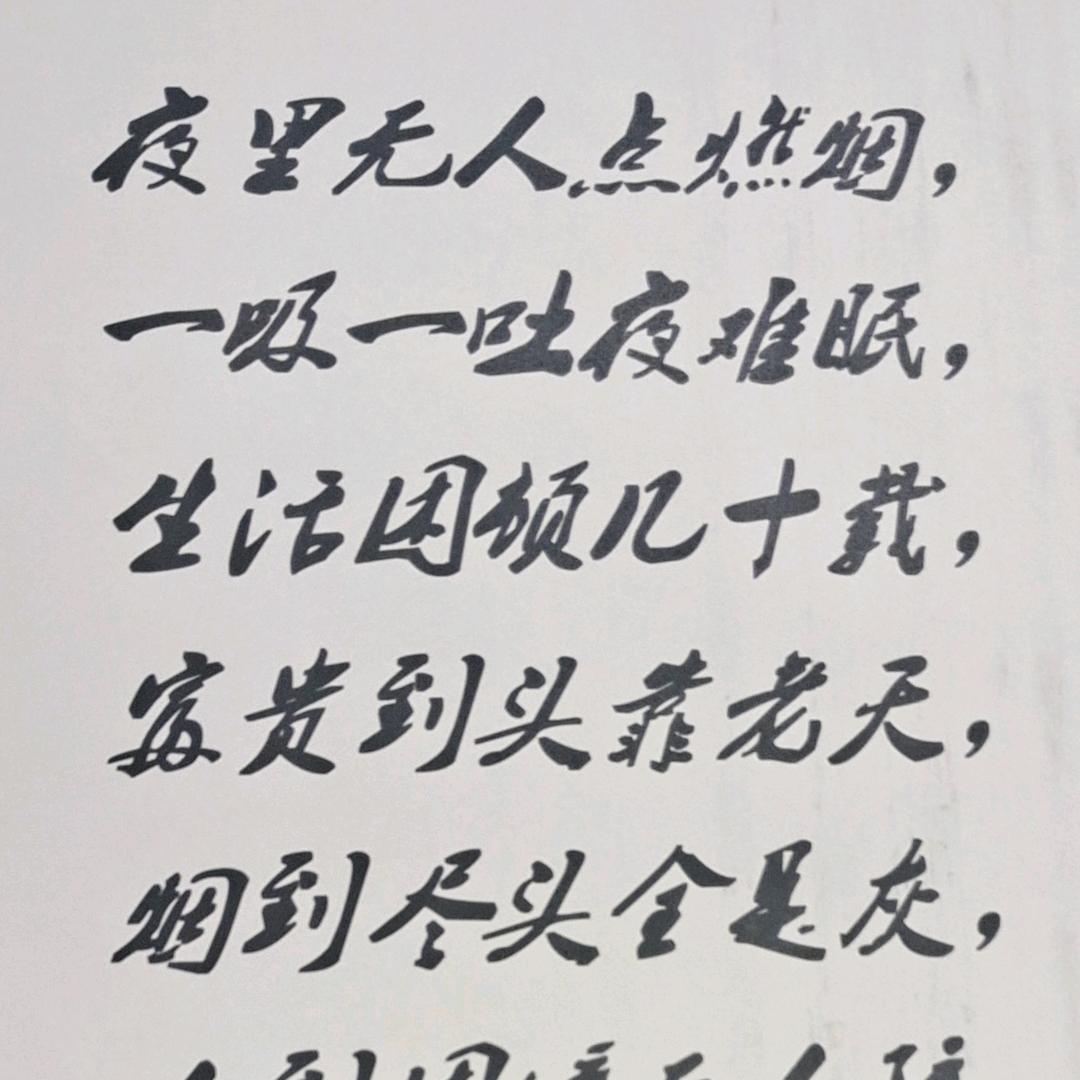 夜里无人点燃烟，
一吸一吐夜难眠，
生活困顿几十载，
富贵到头靠老天，
烟到尽头全是灰，